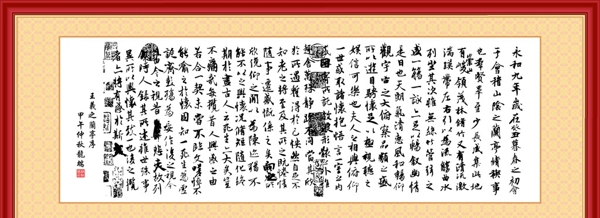 永和九年歲在癸丑暮春之初會
于會稽山陰之蘭亭脩稧事
也羣賢畢至少長咸集此地
有崇山峻領茂林脩竹又有清流激
湍暎帶左右引以為流觴曲水
列坐其次雖無絲竹管弦之
盛一觴一詠亦足以暢敘幽情
是日也天朗氣清惠風和暢仰
觀宇宙之大俯察品類之盛
所以遊目騁懷足以極視聽之
娛信可樂也夫人之相與俯仰
一世或取諸懷抱悟言一室之內
或因寄所託放浪形骸之外雖
趣舍萬殊靜躁不同當其欣
於所遇暫得於己怏然自足不
知老之將至及其所之既惓情
隨事遷感慨係之矣向之所
欣俛仰之間以為陳迹猶不
能不以之興懷況脩短隨化終
期於盡古人云死生亦大矣豈
不痛哉每攬昔人興感之由
若合一契未嘗不臨文嗟悼不
能喻之於懷固知一死生為虛
誕齊彭殤為妄作後之視今
亦由今之視昔悲夫故列
敘時人錄其所述雖世殊事
異所以興懷其致一也後之攬
者亦將有感於斯
王羲之蘭亭序
甲午仲秋龍